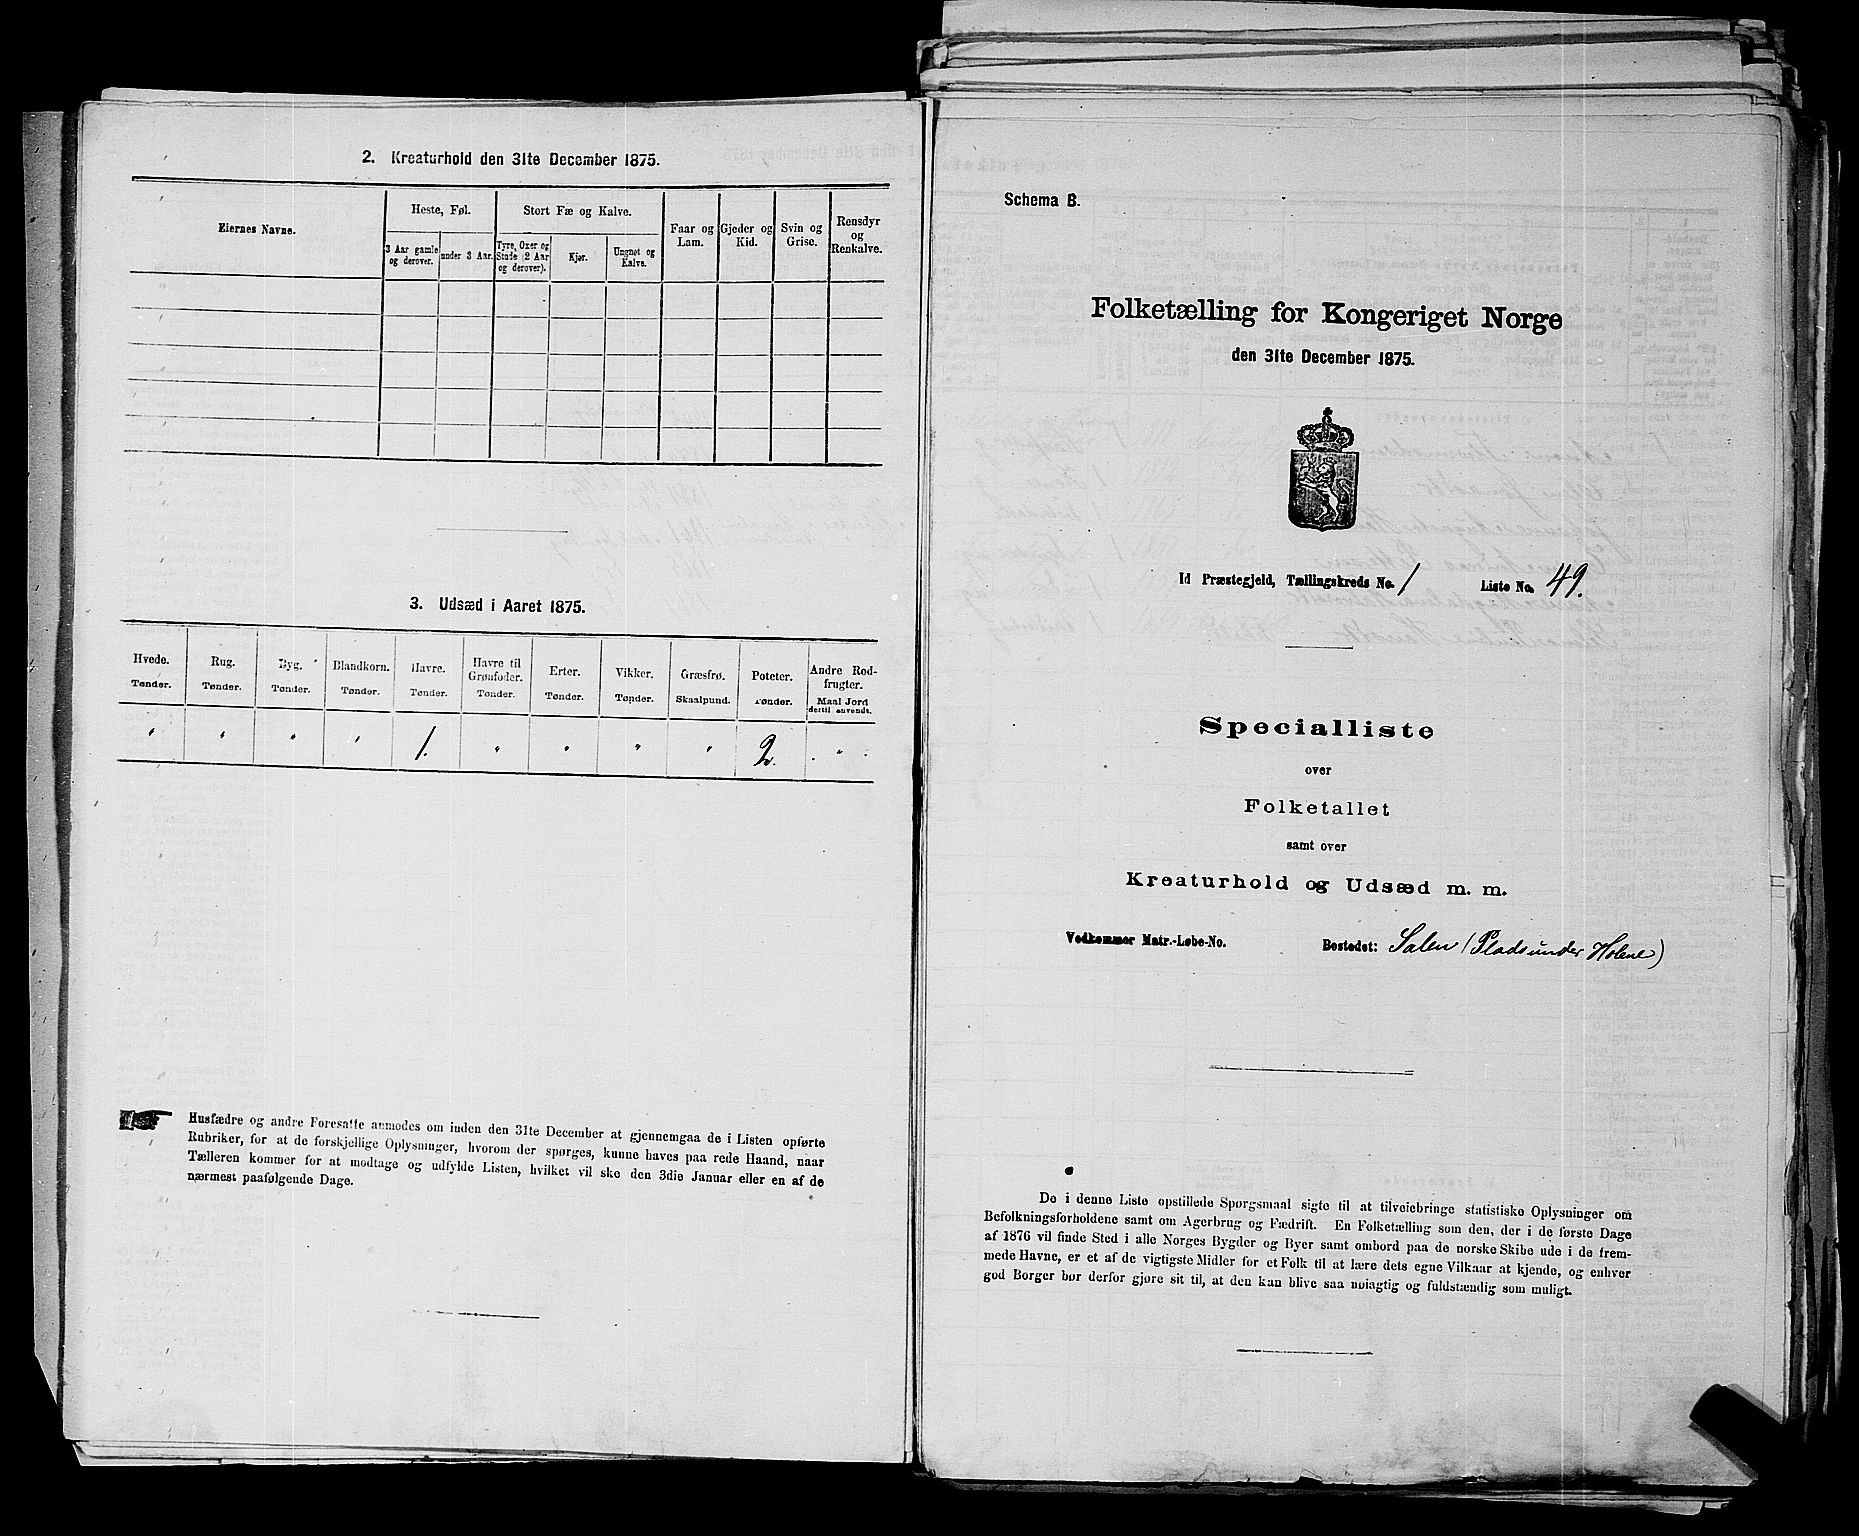 2. Kreaturhold den 31te December 1875.
Eiernes Navne.
Heste, Føl.
3 Aar gamle og derover.
under 3 Aar.
Stort Fæ og Kalve.
Tyre, Oxer og Stude (2 Aar og derover).
Kjør.
Ungnøt og Kalve.
Faar og Lam.
Gjeder og Kid.
Svin og Grise.
Rensdyr og Renkalve.
3. Udsæd i Aaret 1875.
Hvede. Rug. Byg. Blandkorn. Havre. Havre til Grønfoder. Erter. Vikker. Græsfrø. Poteter. Andre Rodfrugter.
Tønder. Tønder. Tønder. Tønder. Tønder. Tønder. Tønder. Tønder. Skaalpund. Tønder. Maal Jord dertil anvendt.
" " " " 1. " " " " 2. "
Husfædre og andre Foresatte anmodes om inden den 31te December at gjennemgaa de i Listen opførte
Rubriker, for at de forskjellige Oplysninger, hvorom der spørges, kunne haves paa rede Haand, naar
Tælleren kommer for at modtage og udfylde Listen, hvilket vil ske den 3die Januar eller en af de
nærmest paafølgende Dage.
Schema B.
Folketælling for Kongeriget Norge
den 31te December 1875.
Id Præstegjeld, Tællingskreds No. 1 Liste No. 49.
Specialliste
over
Folketallet
samt over
Kreaturhold og Udsæd m. m.
Vedkommer Matr.-Løbe-No. Bostedet: Salen (Plads under Holene)
De i denne Liste opstillede Spørgsmaal sigte til at tilveiebringe statistiske Oplysninger om
Befolkningsforholdene samt om Agerbrug og Fædrift. En Folketælling som den, der i de første Dage
af 1876 vil finde Sted i alle Norges Bygder og Byer samt ombord paa de norske Skibe ude i de frem-
mede Havne, er et af de vigtigste Midler for et Folk til at lære dets egne Vilkaar at kjende, og enhver
god Borger bør derfor gjøre sit til, at den kan blive saa nøiagtig og fuldstændig som muligt.